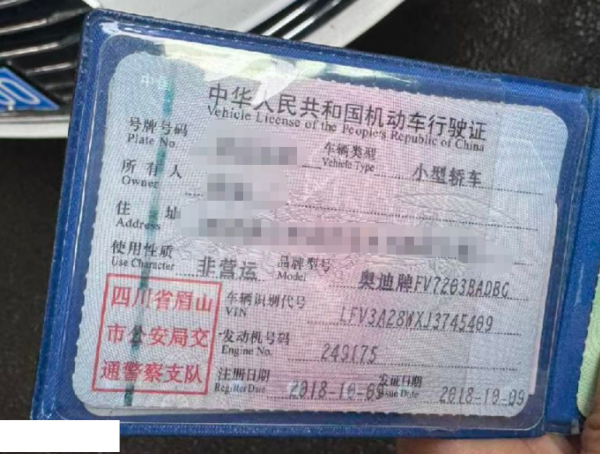 中华人民共和国机动车行驶证
Vehicle License of the People's Republic of China
号牌号码 车辆类型 小型轿车
Plate No. Vehicle Type
所有人
Owner
住址
Address
使用性质 非营运 品牌型号 奥迪牌FV7203BADBG
Use Character Model
四川省眉山
市公安局交
通警察支队
车辆识别代号 LFV3A28WXJ3745409
VIN
发动机号码 249175
Engine No.
注册日期 2018-10-09 发证日期 2018-10-09
Register Date Issue Date